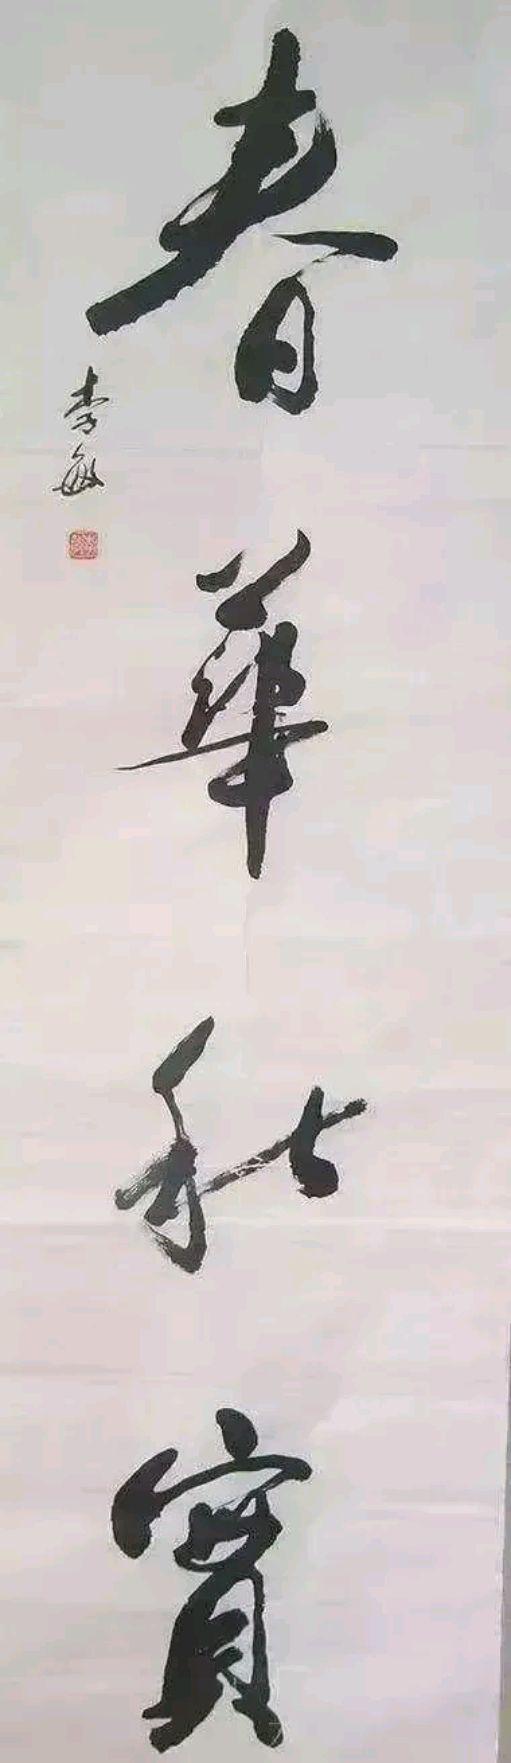 春華秋實
李敏